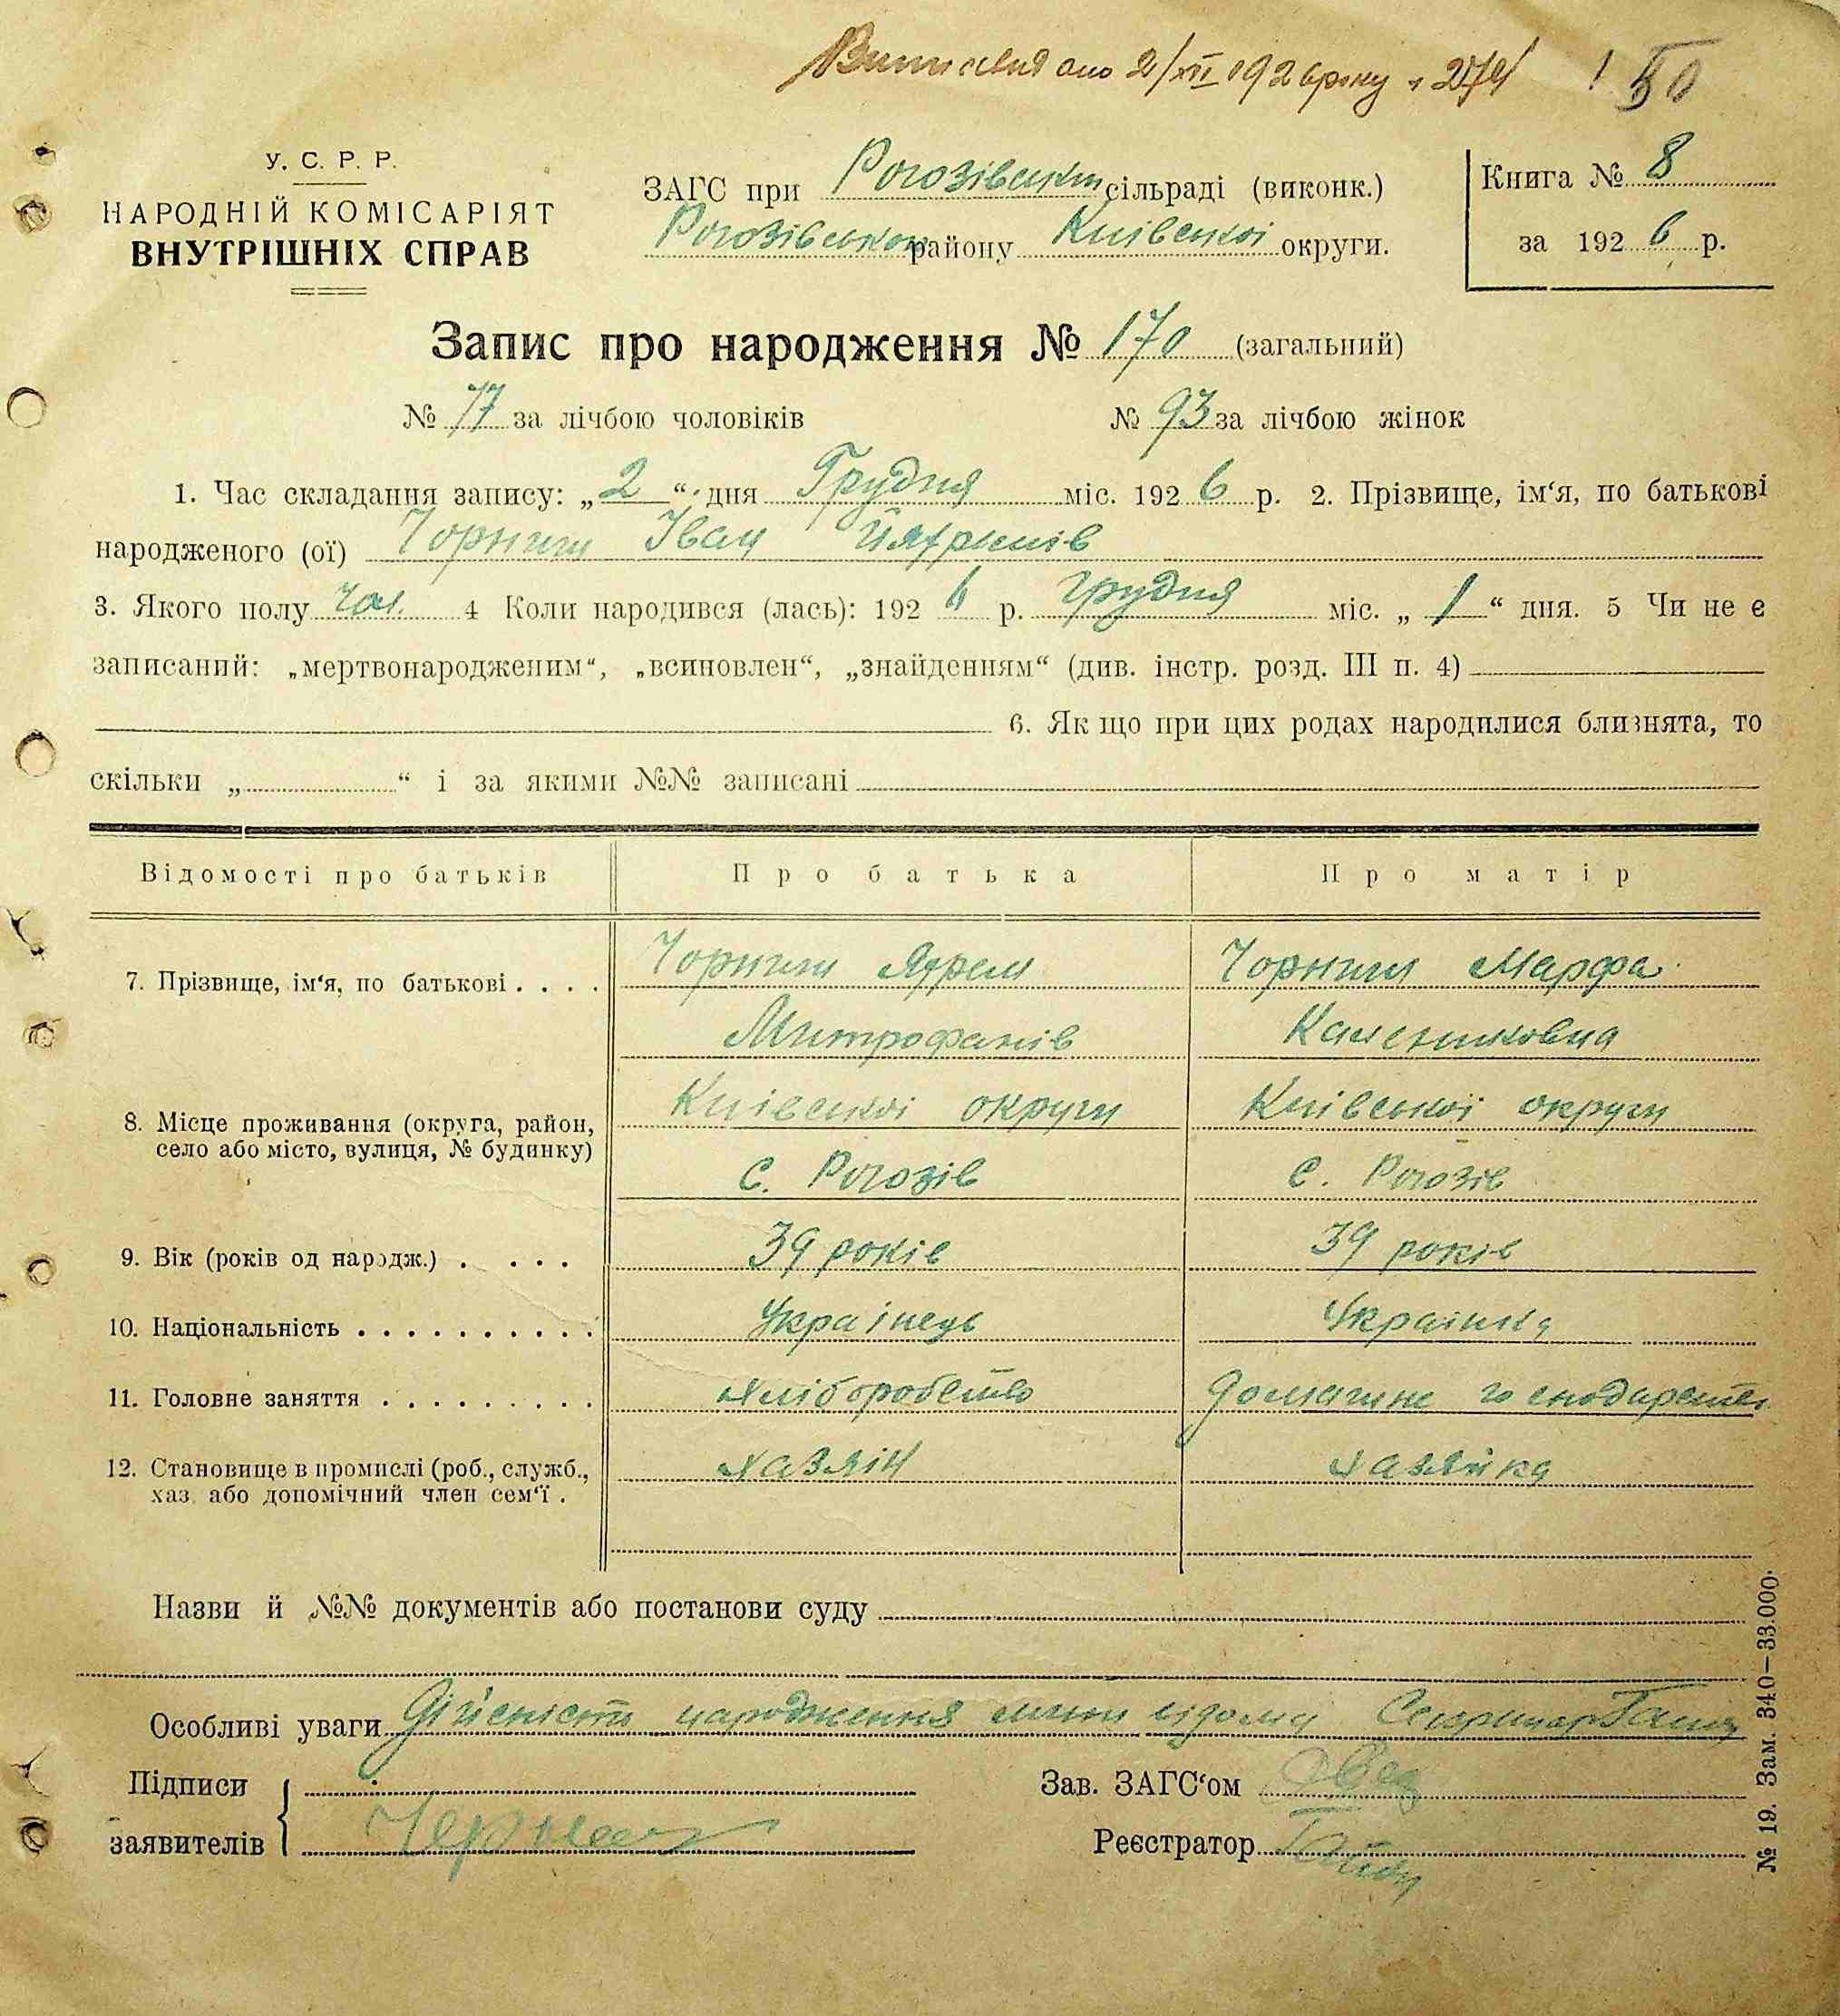 2/XII 1926 року 50
У. С. Р. Р.
НАРОДНІЙ КОМІСАРІЯТ
ВНУТРІШНІХ СПРАВ
ЗАГС при Рогозівськ. сільраді (виконк.)
Рогозівського району Київської округи.
Книга № 8
за 1926 р.
Запис про народження № 170 (загальний)
№ 77 за лічбою чоловіків № 93 за лічбою жінок
1. Час складання запису: „2“ дня Грудня міс. 1926 р. 2. Прізвище, ім‘я, по батькові
народженого (ої) Чорниш Іван
3. Якого полу чол. 4 Коли народився (лась): 1926 р. грудня міс. „1“ дня. 5 Чи не є
записаний: „мертвонародженим“, „всиновлен“, „знайденням“ (див. інстр. розд. III п. 4)
6. Як що при цих родах народилися близнята, то
скільки „ “ і за якими №№ записані
Відомості про батьків Про батька Про матір
7. Прізвище, ім‘я, по батькові . . . . Чорниш Яфрем Чорниш Марфа
Митрофанів Калениковна
8. Місце проживання (округа, район, село або місто, вулиця, № будинку) Київської округи Київської округи
с. Рогозів с. Рогозів
9. Вік (років од народж.) . . . . 39 років 39 років
10. Національність . . . . . . . . . . Українець Українка
11. Головне заняття . . . . . . . . . хліборобство домашнє господарство
12. Становище в промислі (роб., служб., хаз. або допомічний член сем‘ї . хазяін хазяйка
Назви й №№ документів або постанови суду
Особливі уваги Дійсність народження мині відома Секритар
Підписи
заявителів
Зав. ЗАГС‘ом
Реєстратор
№ 19. Зам. 340—33.000.